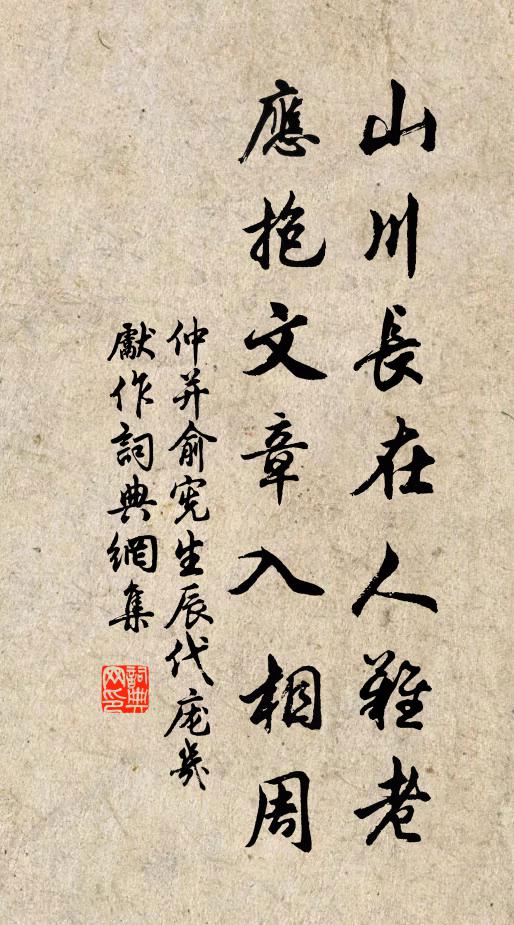 山川長在人難老
應抱文章入相周
仲并俞憲生辰代庞幾
獻作詞典網集
詞典网印